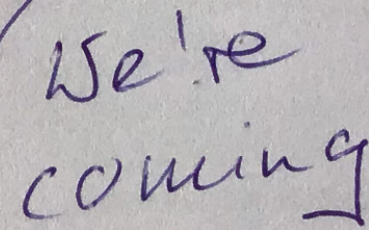 We're
coming